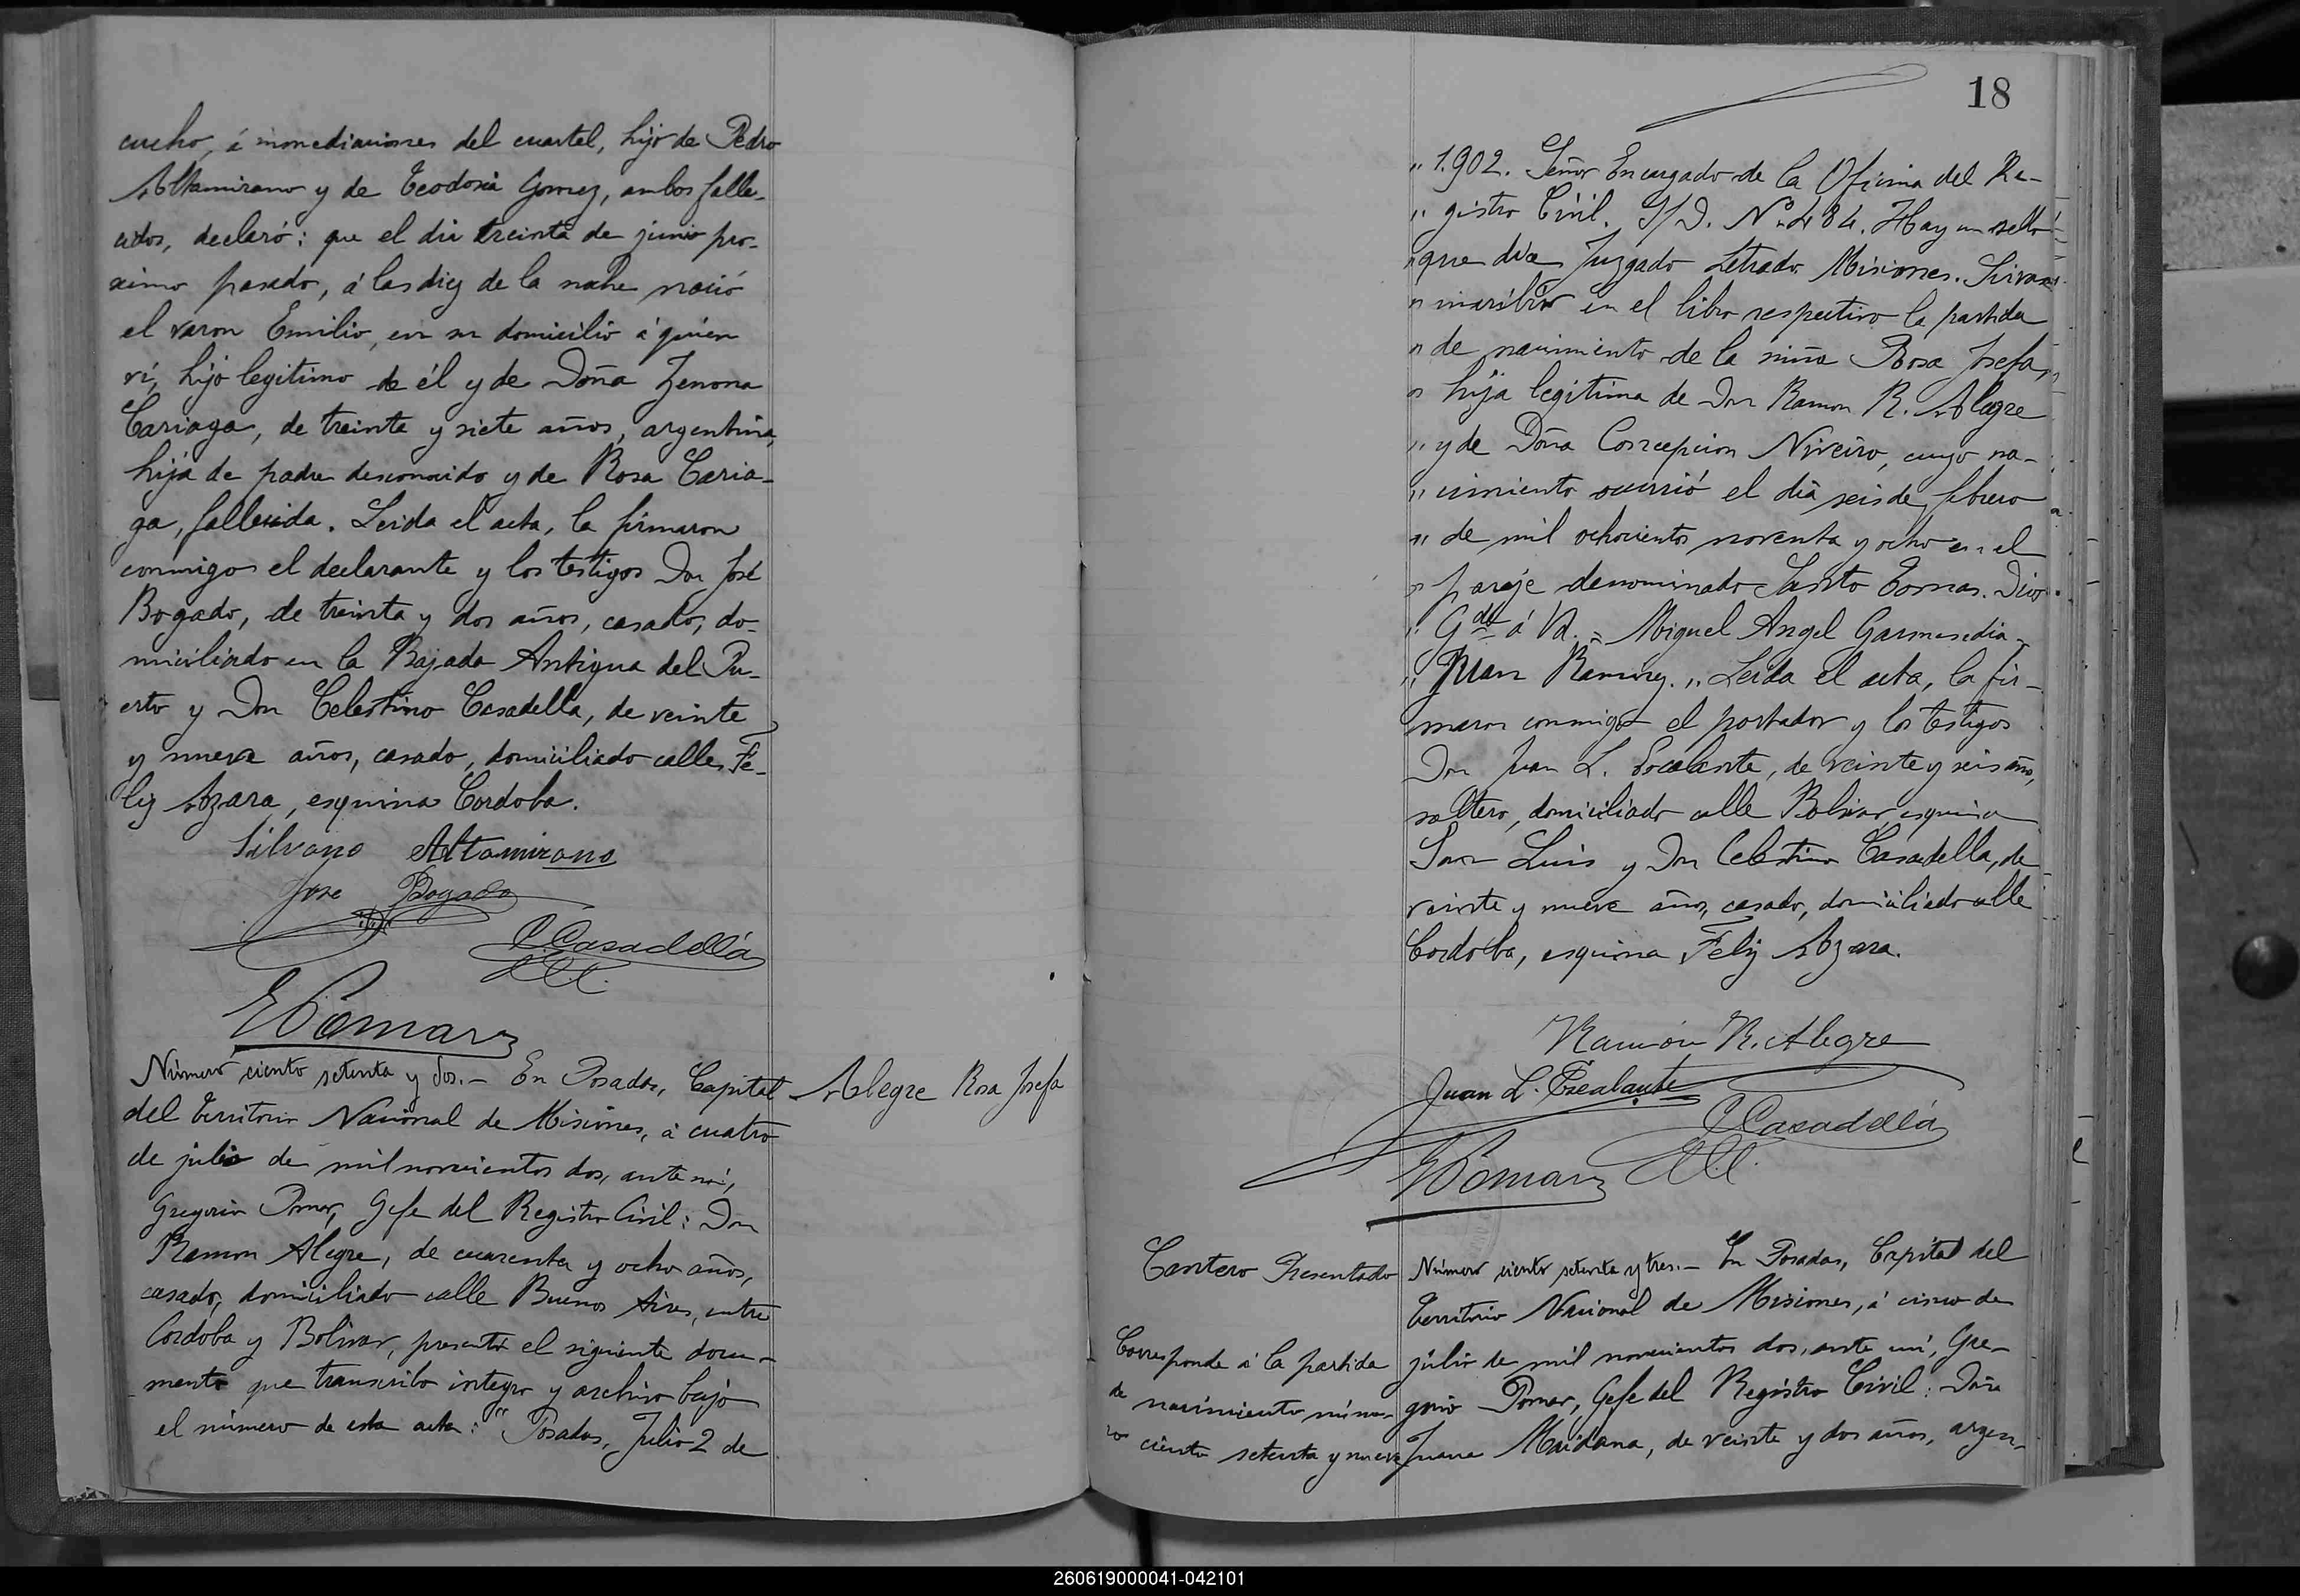 cucho, á inmediaciones del cuartel, hijo de Pedro
Altamirano y de Teodosia Gomez, ambos falle-
cidos, declaró: que el dia treinta de junio pro-
ximo pasado, á las diez de la noche nació
el varon Emilio, en su domicilio á quien
ví, hijo legitimo de él y de Doña Zenona
Cariaga, de treinta y siete años, argentina,
hija de padre desconocido y de Rosa Caria-
ga, fallecida. Leida el acta, la firmaron
conmigo el declarante y los testigos Don José
Bogado, de treinta y dos años, casado, do-
miciliado en la Bajada Antigua del Pu-
erto y Don Celestino Casadella, de veinte
y nueve años, casado, domiciliado calle Fe-
liz Azara, esquina Cordoba.
Silvano Altamirano
Jose Bogado
C Casadellá
E Pomar
Número ciento setenta y dos.- En Posadas, Capital
Alegre Rosa Josefa
del Territorio Nacional de Misiones, á cuatro
de julio de mil novecientos dos, ante mí,
Gregorio Pomar, Gefe del Registro Civil: Don
Ramon Alegre, de cuarenta y ocho años,
casado, domiciliado calle Buenos Aires, entre
Cordoba y Bolivar, presentó el siguiente docu-
mento que transcribo integro y archivo bajo
el número de esta acta: "Posadas, Julio 2 de
18
" 1.902. Señor Encargado de la Oficina del Re-
" gistro Civil. S/D. Nº 484. Hay un sello
" que dice Juzgado Letrado Misiones. Sirvase
" inscribir en el libro respectivo la partida
" de nacimiento de la niña Rosa Josefa,
" hija legitima de Don Ramon R. Alegre
" y de Doña Concepcion Niveiro, cuyo na-
" cimiento ocurrió el dia seis de febrero
" de mil ochocientos noventa y ocho en el
" paraje denominado Santo Tomas. Dios
" Gde á Vd. = Miguel Angel Garmendia-
" Juan Ramirez." Leida el acta, la fir-
maron conmigo el portador y los testigos
Don Juan L. Escalante, de veinte y seis años,
soltero, domiciliado calle Bolivar, esquina
San Luis y Don Celestino Casadella, de
veinte y nueve años, casado, domiciliado calle
Cordoba, esquina Feliz Azara.
Ramón R. Alegre
Juan L. Escalante
C Casadellá
E Pomar
Cantero Presentado
Número ciento setenta y tres.- En Posadas, Capital del
Territorio Nacional de Misiones, á cinco de
julio de mil novecientos dos, ante mí, Gre-
gorio Pomar, Gefe del Registro Civil: Doña
Juana Maidana, de veinte y dos años, argen-
Corresponde á la partida
de nacimiento núme-
ro ciento setenta y nueve
260619000041-042101